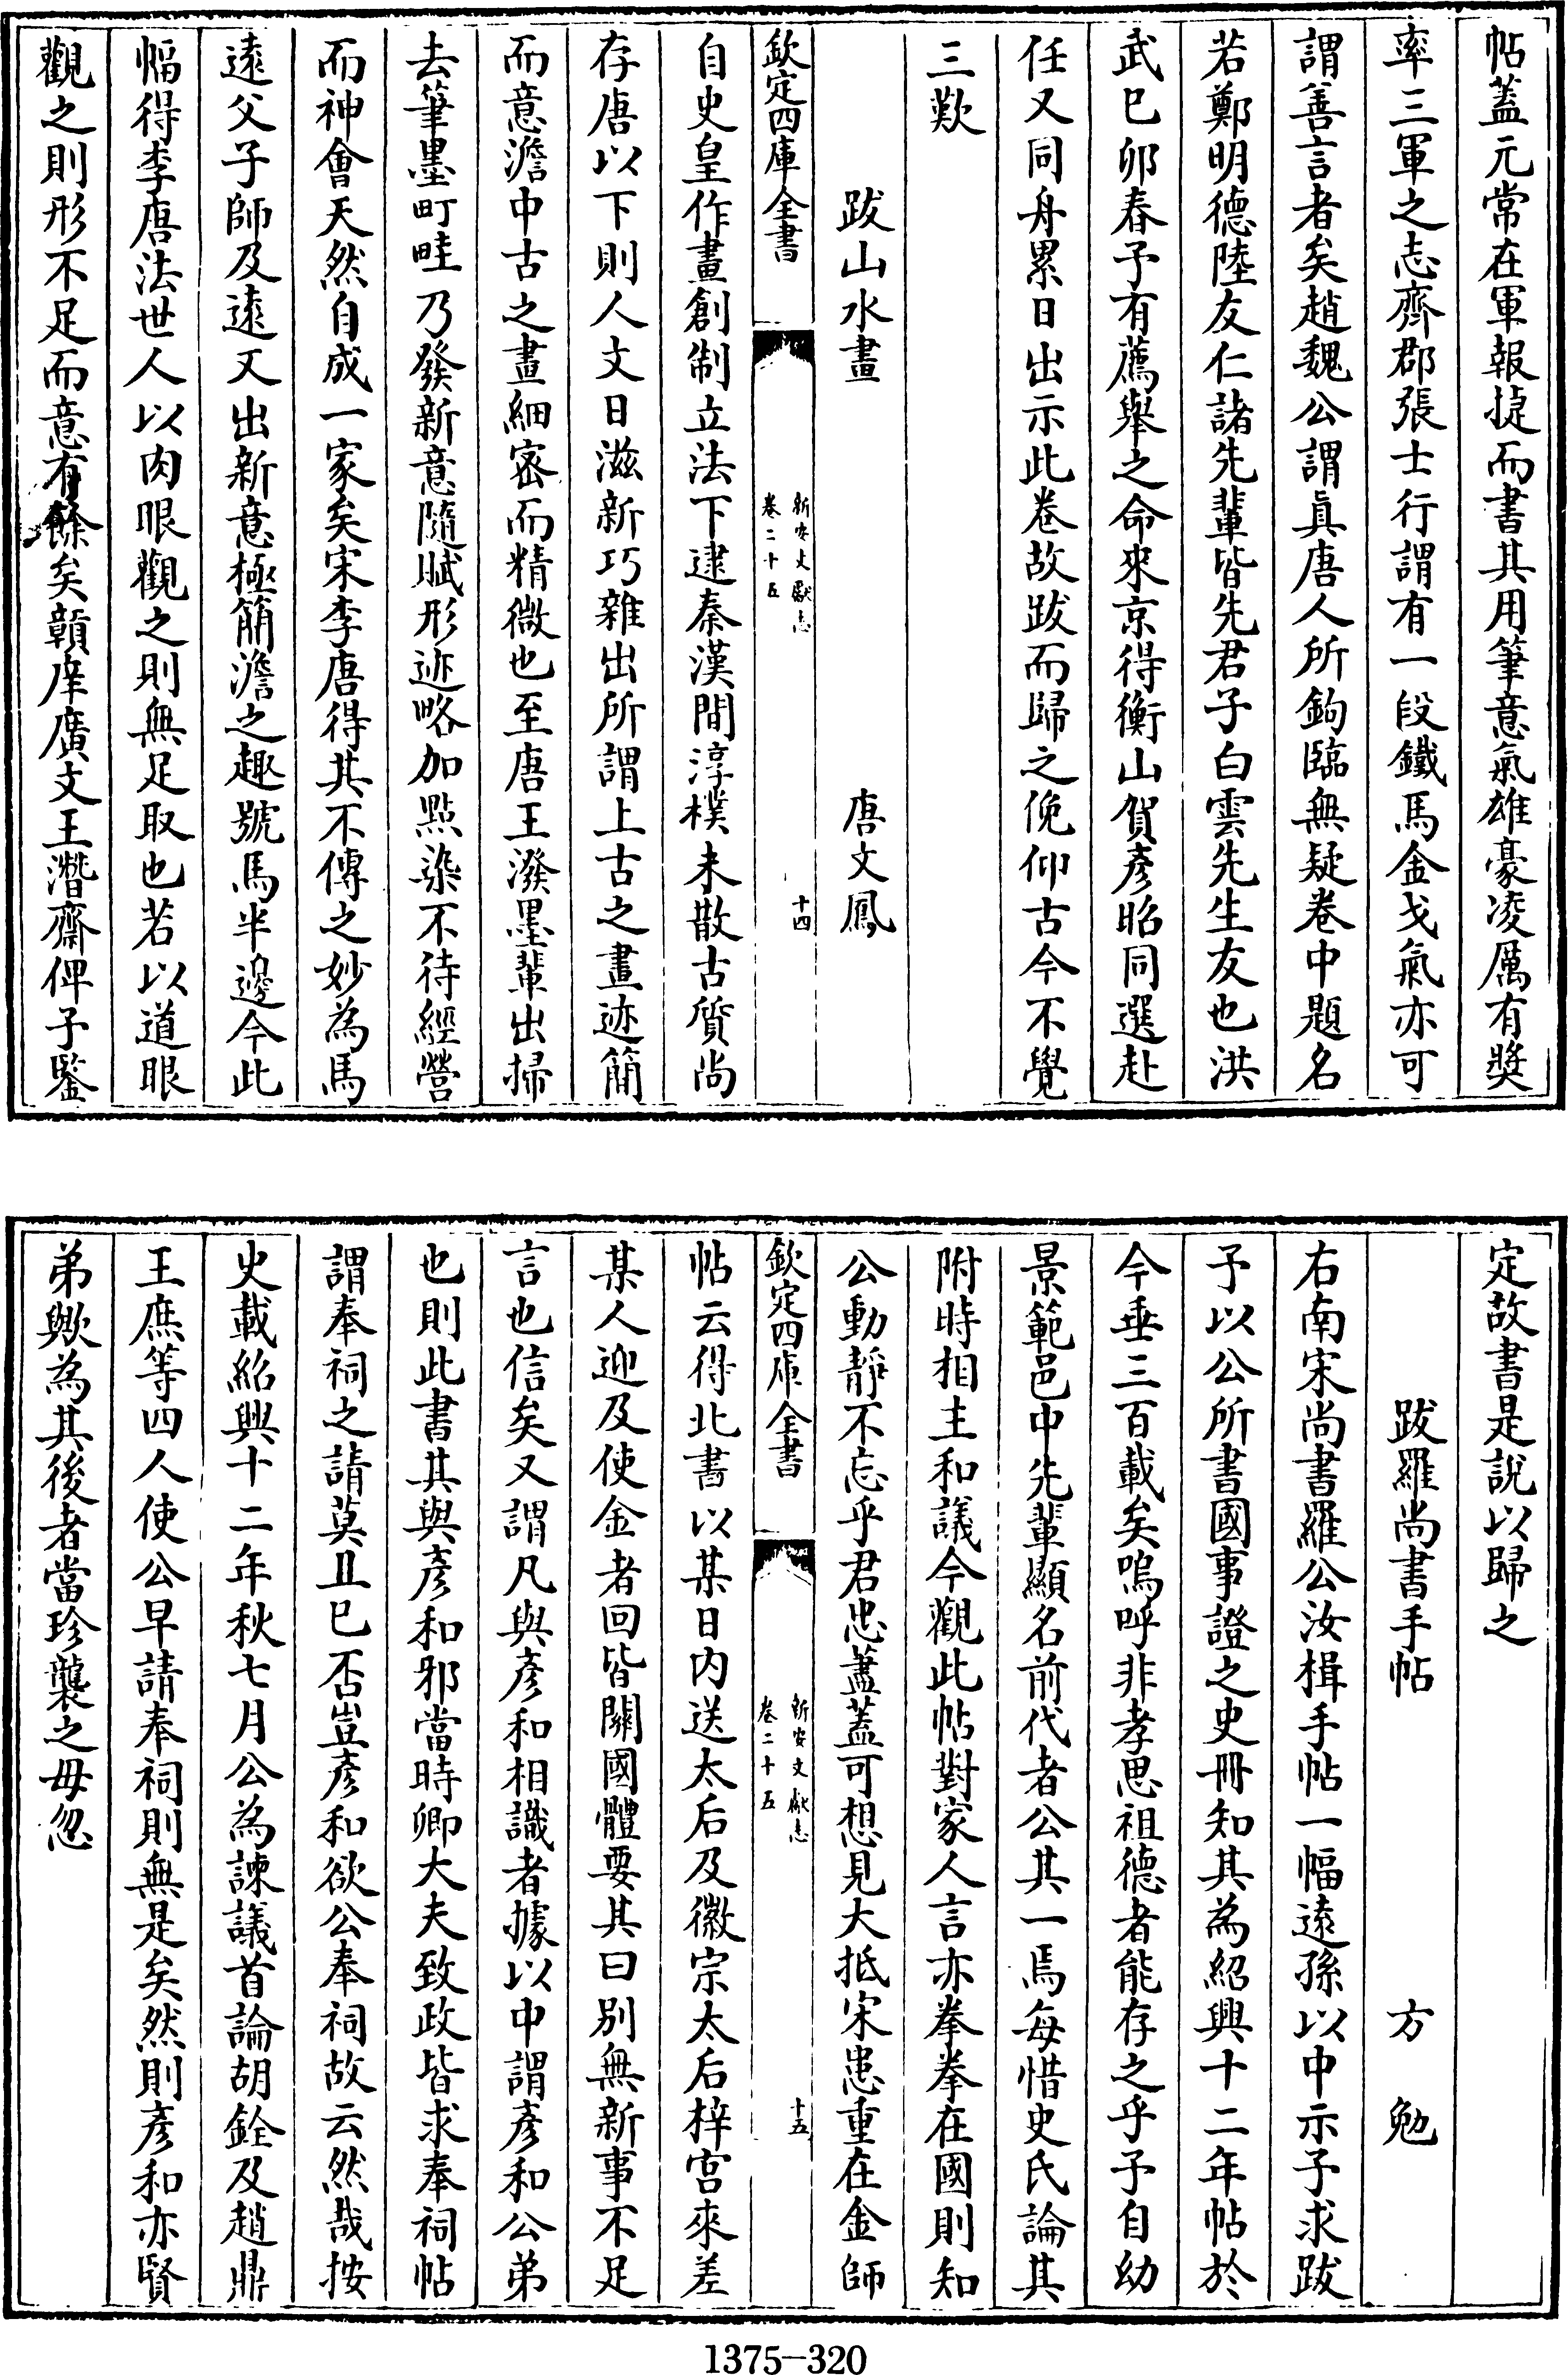 帖蓋元常在軍報捷而書其用筆意氣雄豪凌厲有奬
率三軍之志齊郡張士行謂有一段鐵馬金戈氣亦可
謂善言者矣趙魏公謂眞唐人所鉤臨無疑卷中題名
若鄭明德陸友仁諸先輩皆先君子白雲先生友也洪
武已卯春予有薦舉之命來京得衡山賀彥昭同選赴
任又同舟累日出示此卷故跋而歸之俛仰古今不覺
三歎
跋山水畫 唐文鳳
欽定四庫全書
新安文獻志
卷二十五
十四
自史皇作畫創制立法下逮秦漢間淳樸未散古質尚
存唐以下則人文日滋新巧雜出所謂上古之畫迹簡
而意澹中古之畫細密而精微也至唐王潑墨輩出掃
去筆墨町畦乃發新意隨賦形迹略加點染不待經營
而神會天然自成一家矣宋李唐得其不傳之妙為馬
遠父子師及遠又出新意極簡澹之趣號馬半邊今此
幅得李唐法世人以肉眼觀之則無足取也若以道眼
觀之則形不足而意有餘矣贑庠廣文王潛齋俾予鑒
定故書是說以歸之
跋羅尚書手帖 方勉
右南宋尚書羅公汝楫手帖一幅遠孫以中示予求跋
予以公所書國事證之史冊知其為紹興十二年帖於
今垂三百載矣嗚呼非孝思祖德者能存之乎予自幼
景範邑中先輩顯名前代者公其一焉每惜史氏論其
附時相主和議今觀此帖對家人言亦拳拳在國則知
公動靜不忘乎君忠藎蓋可想見大抵宋患重在金師
欽定四庫全書
新安文獻志
卷二十五
十五
帖云得北書以某日内送太后及徽宗太后梓宮來差
某人迎及使金者回皆關國體要其曰别無新事不足
言也信矣又謂凡與彥和相識者據以中謂彥和公弟
也則此書其與彥和邪當時卿大夫致政皆求奉祠帖
謂奉祠之請莫且已否豈彥和欲公奉祠故云然哉按
史載紹興十二年秋七月公為諫議首論胡銓及趙鼎
王庶等四人使公早請奉祠則無是矣然則彥和亦賢
弟歟為其後者當珍襲之毋忽
1375-320